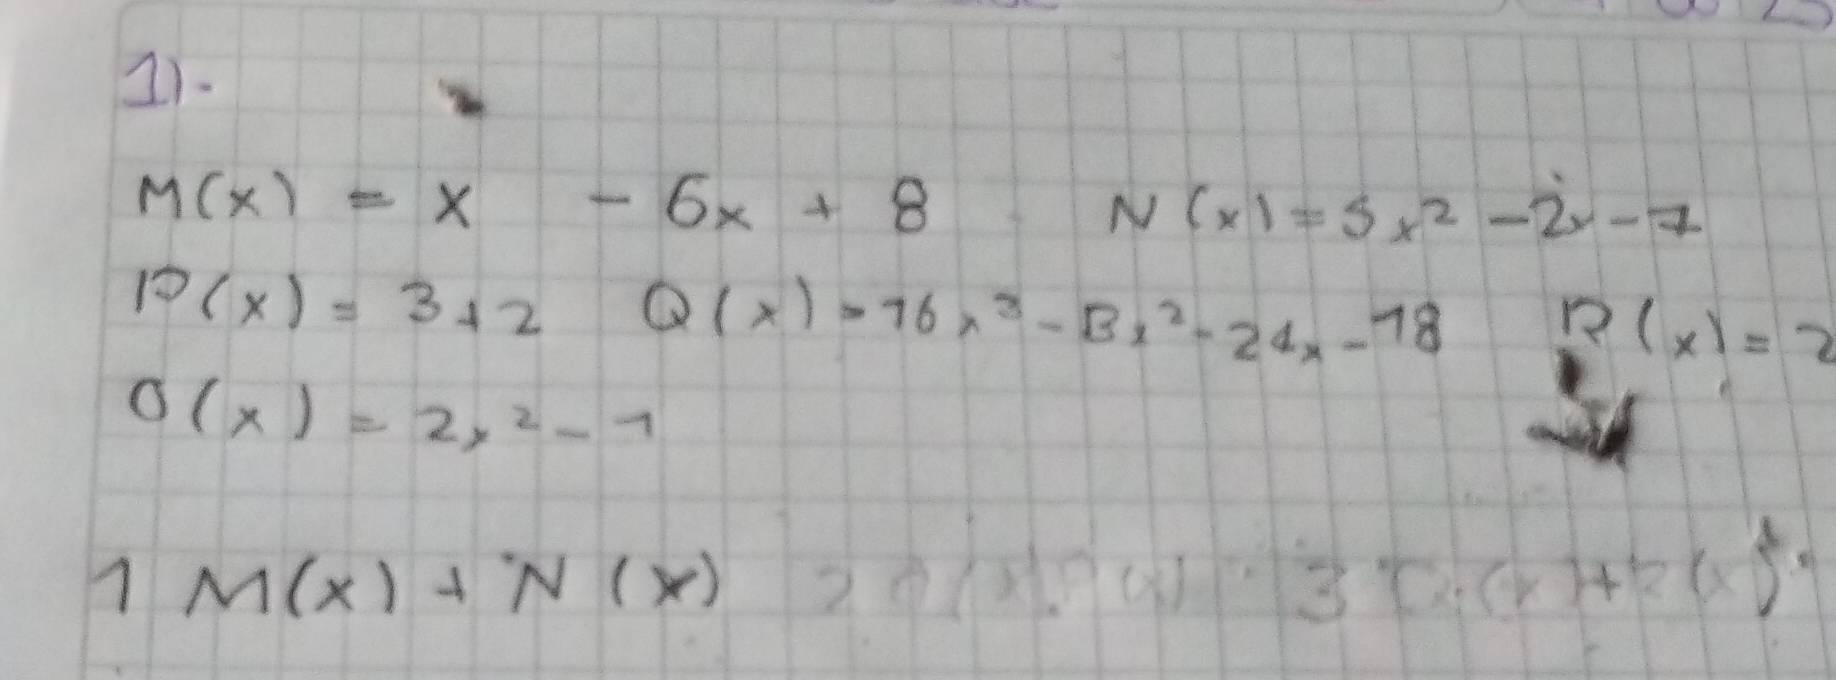 1).
M(x) = x - 6x + 8 N(x) = 5x² - 2x - 7
P(x) = 3+2 Q(x) = 16x³ - 13x² - 24x - 18 R(x) = 2
O(x) = 2x² - 1
1 M(x) + N(x) 3